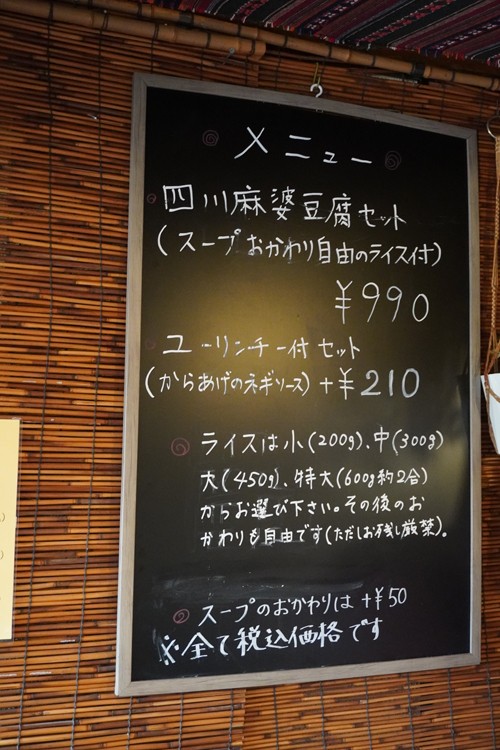 メニュー
四川麻婆豆腐セット
(スープおかわり自由のライス付)
¥990
ユーリンチー付セット
(からあげのネギソース)+¥210
ライスは小(200g)、中(300g)
大(450g)、特大(600g約2合)
からお選び下さい。その後のお
かわりも自由です(ただしお残し厳禁)。
スープのおかわりは+¥50
※全て税込価格です